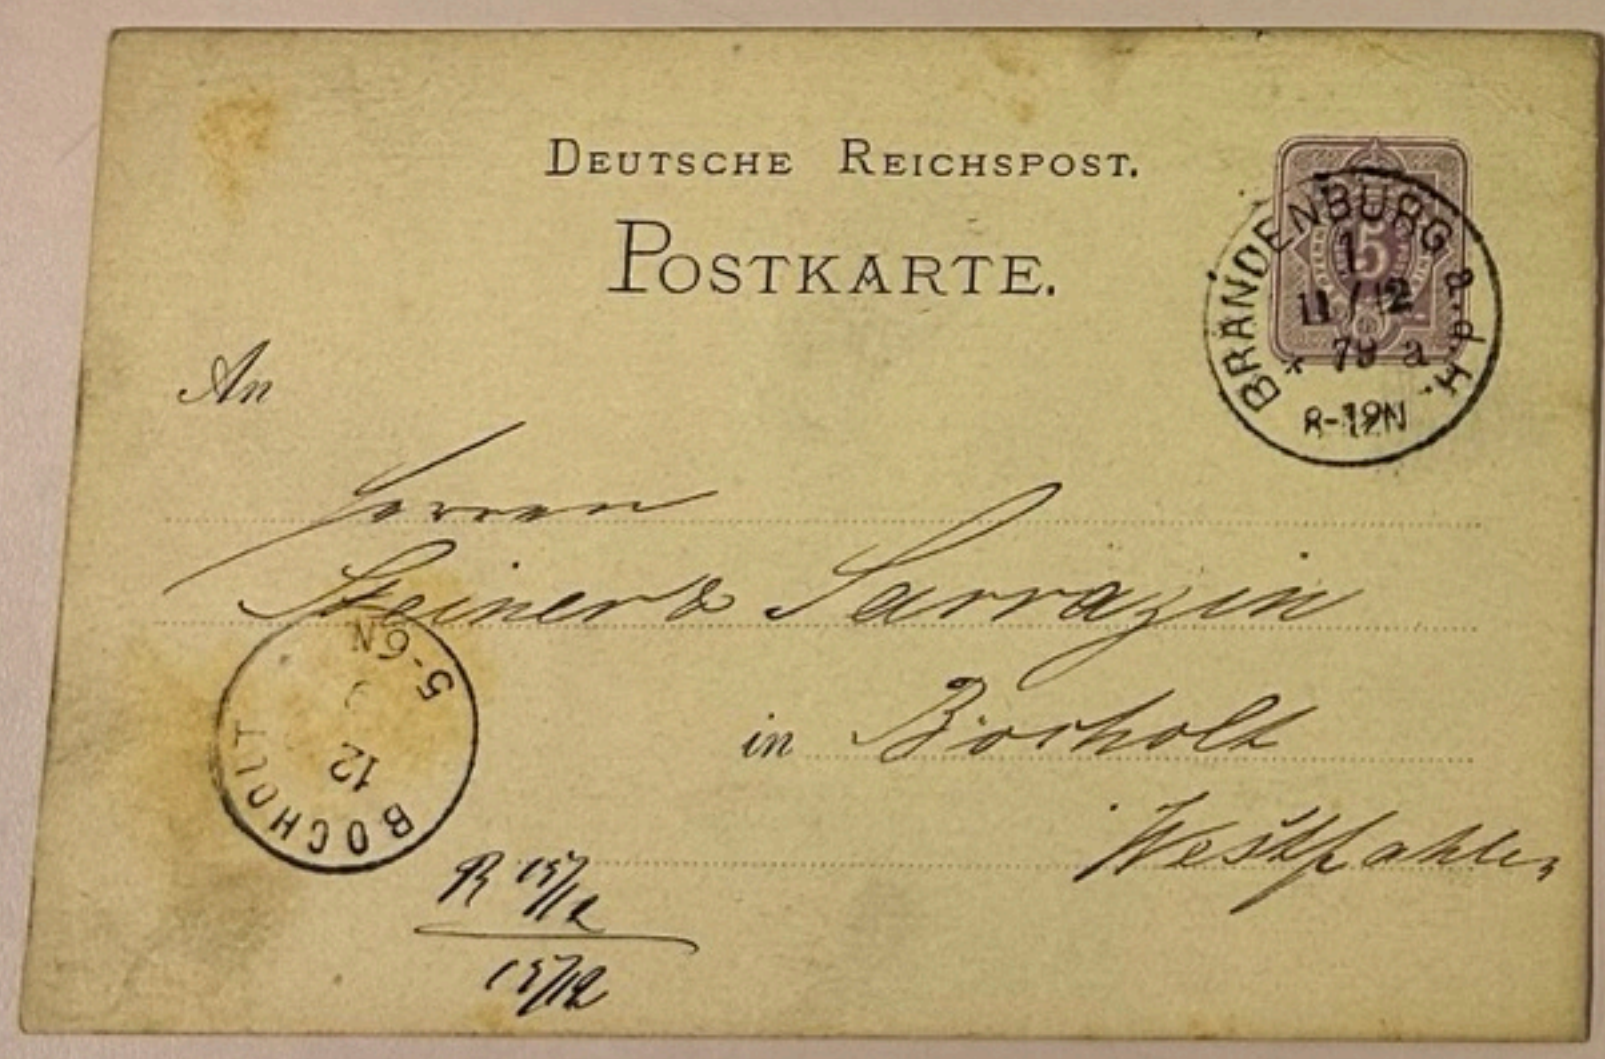 DEUTSCHE REICHSPOST.
POSTKARTE.
BRANDENBURG a.d.H.
5
1
11/12
* 79 a
8-12N
An
Herren
Steiner & Sarrazin
in Bocholt
Westfahlen
5-6N
12
BOCHOLT
R 15/12
15/12